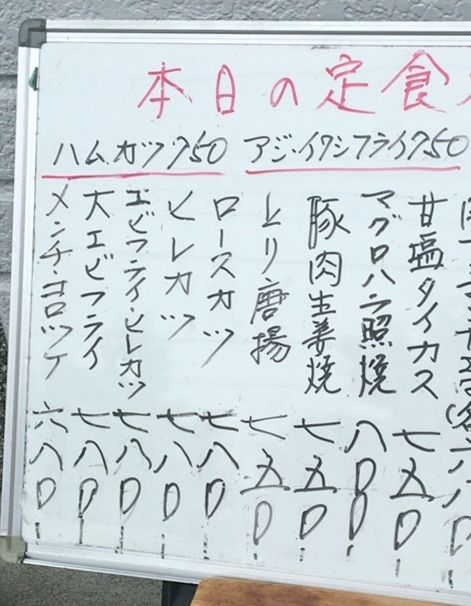 本日の定食
ハムカツ750 アジ・イワシフライ750
甘塩タイカス 七五〇
マグロハラ照焼 八〇〇
豚肉生姜焼 七五〇
とり唐揚 七五〇
ロースカツ 七八〇
ヒレカツ 七八〇
エビフライ・ヒレカツ 七八〇
大エビフライ 七八〇
メンチ・コロッケ 六八〇